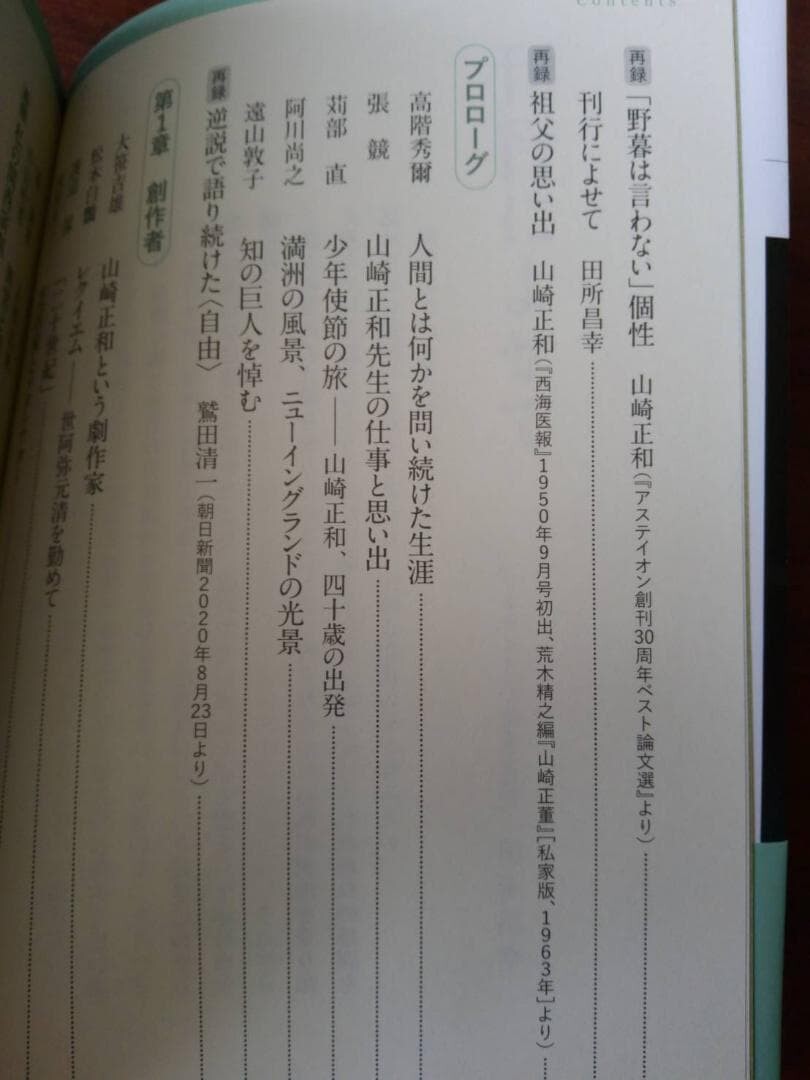 Contents
再録 「野暮は言わない」個性 山崎正和(『アステイオン創刊30周年ベスト論文選』より)
刊行によせて 田所昌幸
再録 祖父の思い出 山崎正和(『西海医報』1950年9月号初出、荒木精之編『山崎正董』[私家版、1963年]より)
プロローグ
高階秀爾 人間とは何かを問い続けた生涯
張 競 山崎正和先生の仕事と思い出
苅部 直 少年使節の旅――山崎正和、四十歳の出発
阿川尚之 満洲の風景、ニューイングランドの光景
遠山敦子 知の巨人を悼む
再録 逆説で語り続けた〈自由〉 鷲田清一(朝日新聞2020年8月23日より)
第1章 創作者
大笹吉雄 山崎正和という劇作家
松本白鸚 レクイエム――世阿弥元清を勤めて